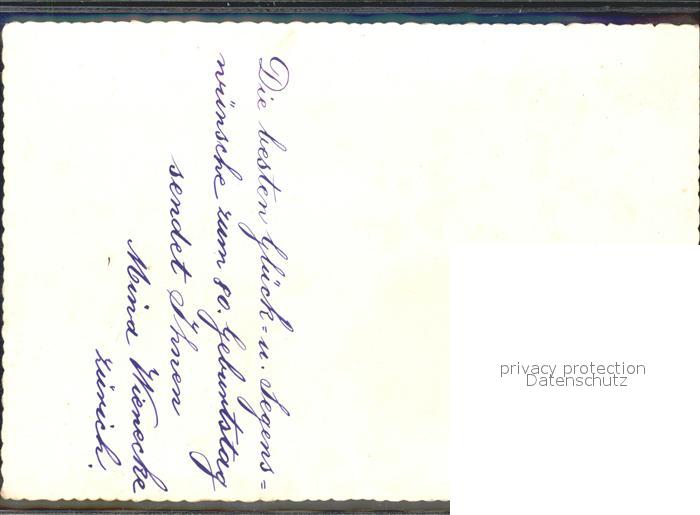 Die besten Glück=u. Segens=
wünsche zum 80. Geburtstag
sendet Ihnen
Mina Wienecke
Zürich.
privacy protection
Datenschutz